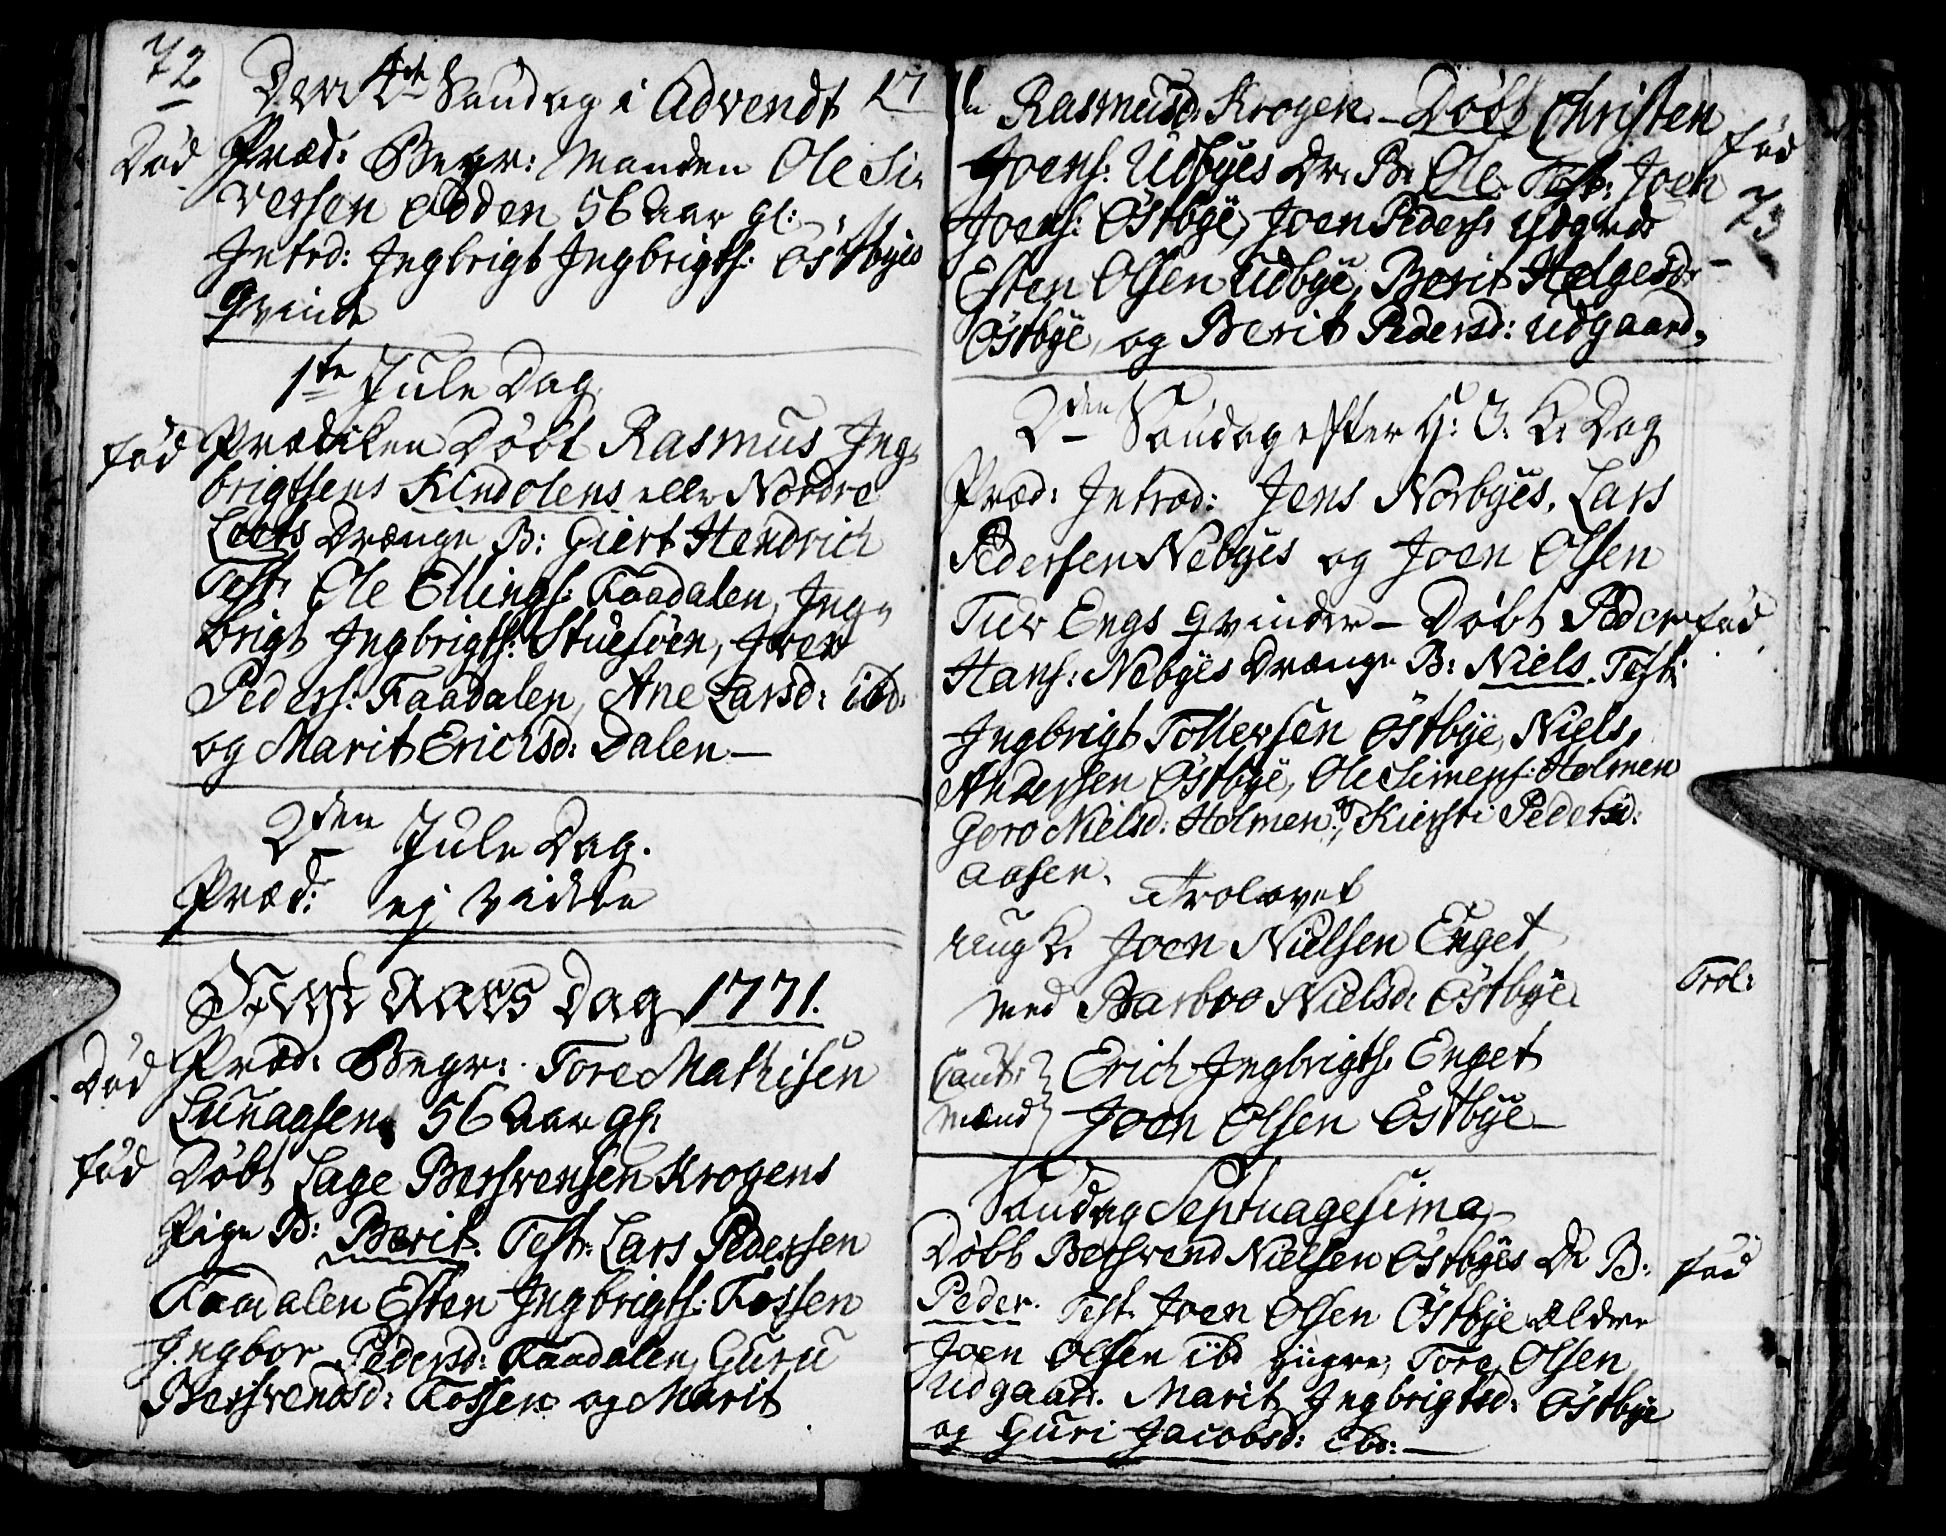 72
Den 4de Søndag i Advendt 17
Død Præd: Begr: Manden Ole Si-
versen Odden 56 aar gl:
Introd: Ingbrigt Ingbrigts: Östbyes
Qvinde
1ste Jule Dag
fød Prædiken Döbt Rasmus Ing-
brigtsens Klndolens eller Nordre
Leets Drænge B: Giert Hendrich
Test: Ole Ellings: Kaadalen, Ing-
brigt Ingbrigts: Stuesöen, Iver
Peders: Kaadalen, Ane Larsd: ibd:
og Marit Erichsd: Dalen —
2den Jule Dag.
Præd: ej vidre
Nyt Aars Dag 1771.
Död Præd: Begr: Tore Mathisen
Lunaasen 56 aar gl:
fød Döbt Lage Bersvensen Krogens
Pige B: Berit. Test: Lars Pedersen
Kaadalen Esten Ingbrigts: Fossen
Ingbor Pedersd: Kaadalen, Guru
Bersvendsd: Fossen og Marit
Rasmusd: Krogen. — Döbt Christen fød
Joens: Udbyes Dr. B: Ole. Test: Joen
73
Joens: Östbye, Joen Peders: Udgrd:
Esten Olsen Udbye, Berit Helgesdr
Östbye, og Berit Pedersd: Udgaard.
2den Søndag efter H: 3: K: Dag
Præd: Introd: Jens Norbyes, Lars
Pedersen Nebyes og Joen Olsen
Tuv Engs Qvinder — Döbt Peder fød
Hans: Nebyes Drænge B: Niels. Test:
Ingbrigt Tollevsen Östbye, Niels
Andersen Östbye, Ole Simens: Holmen
Goro Nielsd: Holmen, og Kiersti Pedersd:
Aasen.
Trolovet
ung K: Joen Nielsen Enget
med Barbro Nielsd: Östbye. Trol:
Caut: Erich Ingbrigts: Enget
mænd Joen Olsen Östbye —
Søndag Septuagesima
Döbt Bersvend Nielsen Östbyes Dr B: fød
Peder. Test: Joen Olsen Östbye ældre
Joen Olsen ibd yngre, Tore Olsen
Udgaar. Marit Ingbrigtsd: Östbye
og Guri Jacobsd: ibd: —